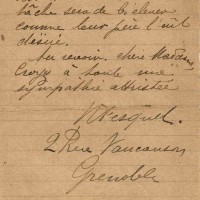 tâche sera de les élever
comme leur père l'eût
désiré.
Au revoir, chère Madame,
Croyez à toute ma
sympathie attristée
2 Rue Vaucanson
Grenoble